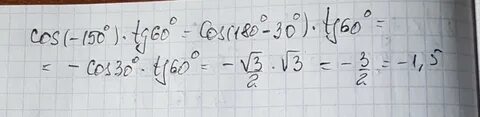 cos(-150°)·tg60° = cos(180°-30°)·tg60° =
= -cos30°·tg60° = -√3/2·√3 = -3/2 = -1,5